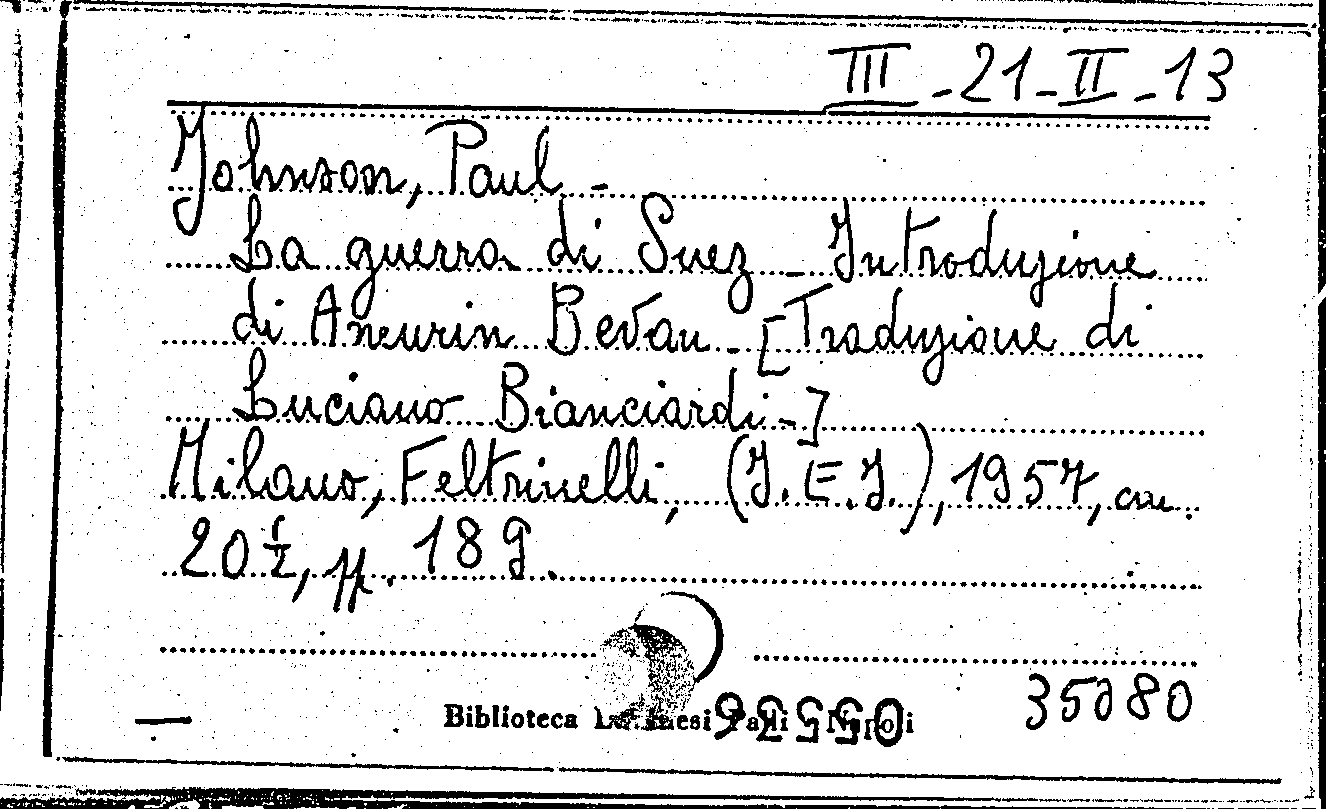 III-21-II-13
Johnson, Paul -
La guerra di Suez - Introduzione
di Aneurin Bevan - [Traduzione di
Luciano Bianciardi -]
Milano, Feltrinelli, (I.E.I.), 1957, cm.
20 ½, pp. 189.
35080
Biblioteca